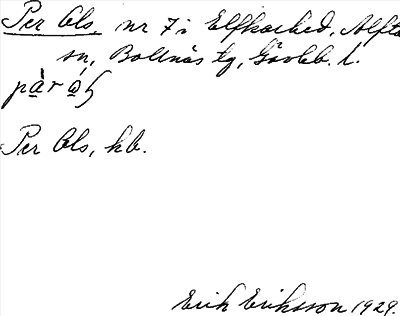 Per Ols, nr 7 i Elfkarhed, Alfta
sn, Bollnäs tg, Gävleb. l.
Per Ols, kb.
Erik Eriksson 1929.